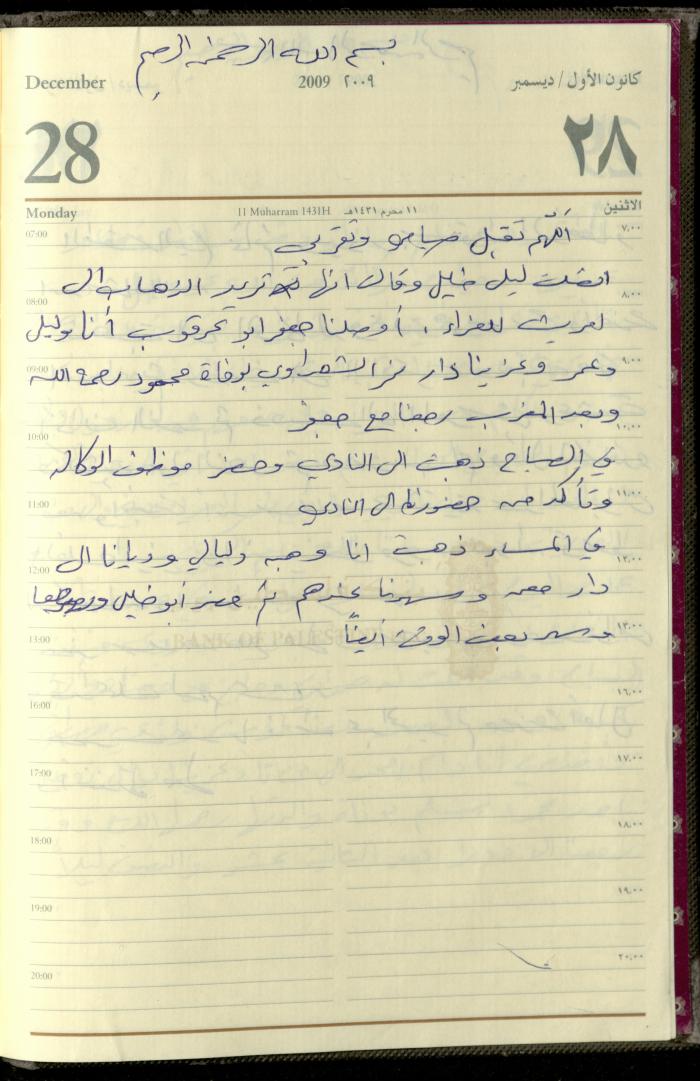 بسم الله الرحمن الرحيم
December 2009 ٢٠٠٩ كانون الأول / ديسمبر
28 ٢٨
Monday 11 Muharram 1431H ١١ محرم ١٤٣١هـ الاثنين
07:00 ٧,٠٠
اللهم تقبل صيامي وتقربي
اتصلت ليلى خليل وقالت انها تريد الذهاب الى
08:00 ٨,٠٠
لعزاء، أوصلنا جعفر ابو أنا وليلى
09:00 ٩,٠٠
وعمر وعزينا دار الشعراوي بوفاة محمود رحمه الله
وبعد المغرب رجعنا مع جعفر
10:00 ١٠,٠٠
في الصباح ذهبت الى النادي وحضر موظف الوكالة
11:00 ١١,٠٠
وتأكد من حضورنا الى النادي
في المساء ذهبت انا وهبه وليالي وديانا الى
12:00 ١٢,٠٠
دار وسهرنا عندهم ثم حضر أبو خليل
13:00 ١٣,٠٠
وسهر بعض الوقت أيضاً
BANK OF PALESTINE
16:00 ١٦,٠٠
17:00 ١٧,٠٠
18:00 ١٨,٠٠
19:00 ١٩,٠٠
20:00 ٢٠,٠٠